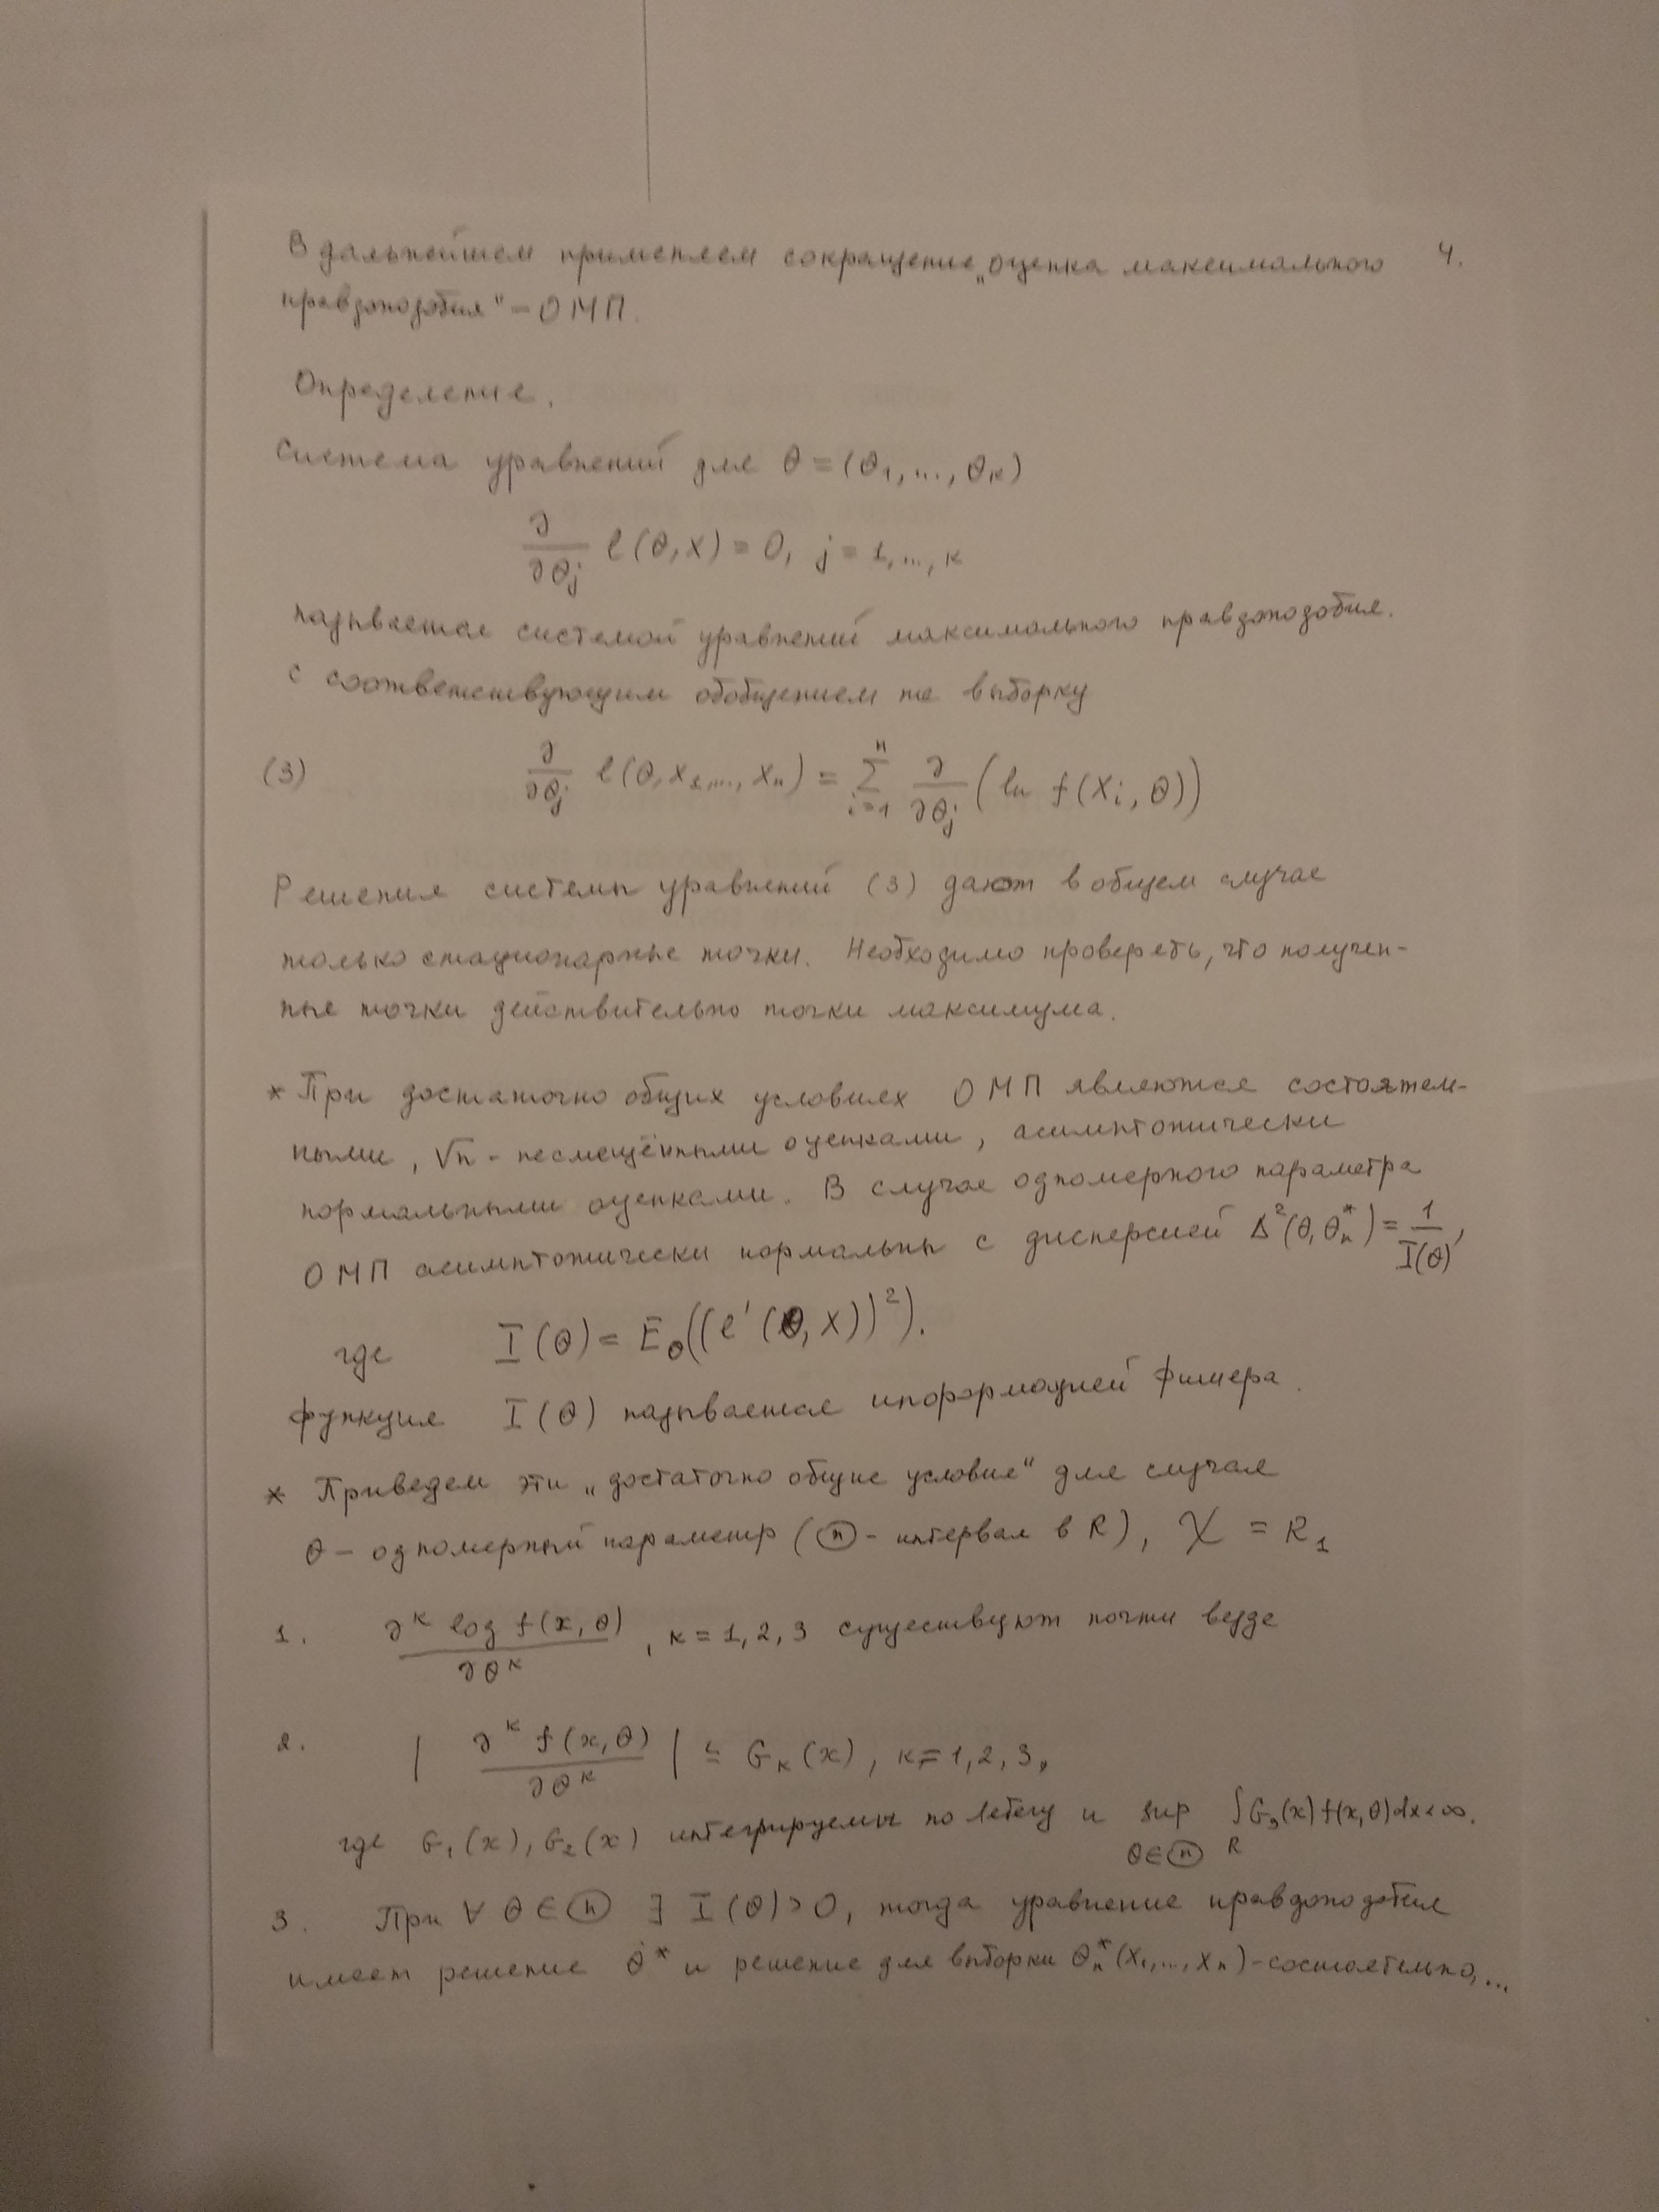 В дальнейшем применяем сокращение „оценка максимального 4.
правдоподобия" – ОМП.
Определение.
Система уравнений для θ = (θ₁, ..., θₖ)
∂/∂θⱼ l(θ, X) = 0, j = 1, ..., к
называется системой уравнений максимального правдоподобия.
с соответствующим обобщением на выборку
(3) ∂/∂θⱼ l(θ, X₁, ..., Xₙ) = ∑ᵢ₌₁ⁿ ∂/∂θⱼ (ln f(Xᵢ, θ))
Решения системы уравнений (3) дают в общем случае
только стационарные точки. Необходимо провереть, что получен-
ные точки действительно точки максимума.
* При достаточно общих условиях ОМП являются состоятель-
ными, √n - несмещёнными оценками, асимптотически
нормальными оценками. В случае одномерного параметра
ОМП асимптотически нормальны с дисперсией Δ²(θ, θₙ*) = 1/I(θ),
где I(θ) = E_θ((l'(θ, X))²).
Функция I(θ) называется информацией Фишера.
* Приведем эти „достаточно общие условия" для случая
θ – одномерный параметр (Ⓗ - интервал в R), 𝒳 = R₁
1. ∂ᵏ log f(x, θ)/∂θᵏ, к = 1, 2, 3 существуют почти везде
2. |∂ᵏ f(x, θ)/∂θᵏ| ≤ Gₖ(x), к = 1, 2, 3,
где G₁(x), G₂(x) интегрируемы по Лебегу и sup_{θ∈Ⓗ} ∫_R G₃(x) f(x, θ) dx < ∞.
3. При ∀ θ ∈ Ⓗ ∃ I(θ) > 0, тогда уравнение правдоподобия
имеет решение θ* и решение для выборки θₙ*(X₁, ..., Xₙ) - состоятельно, ...